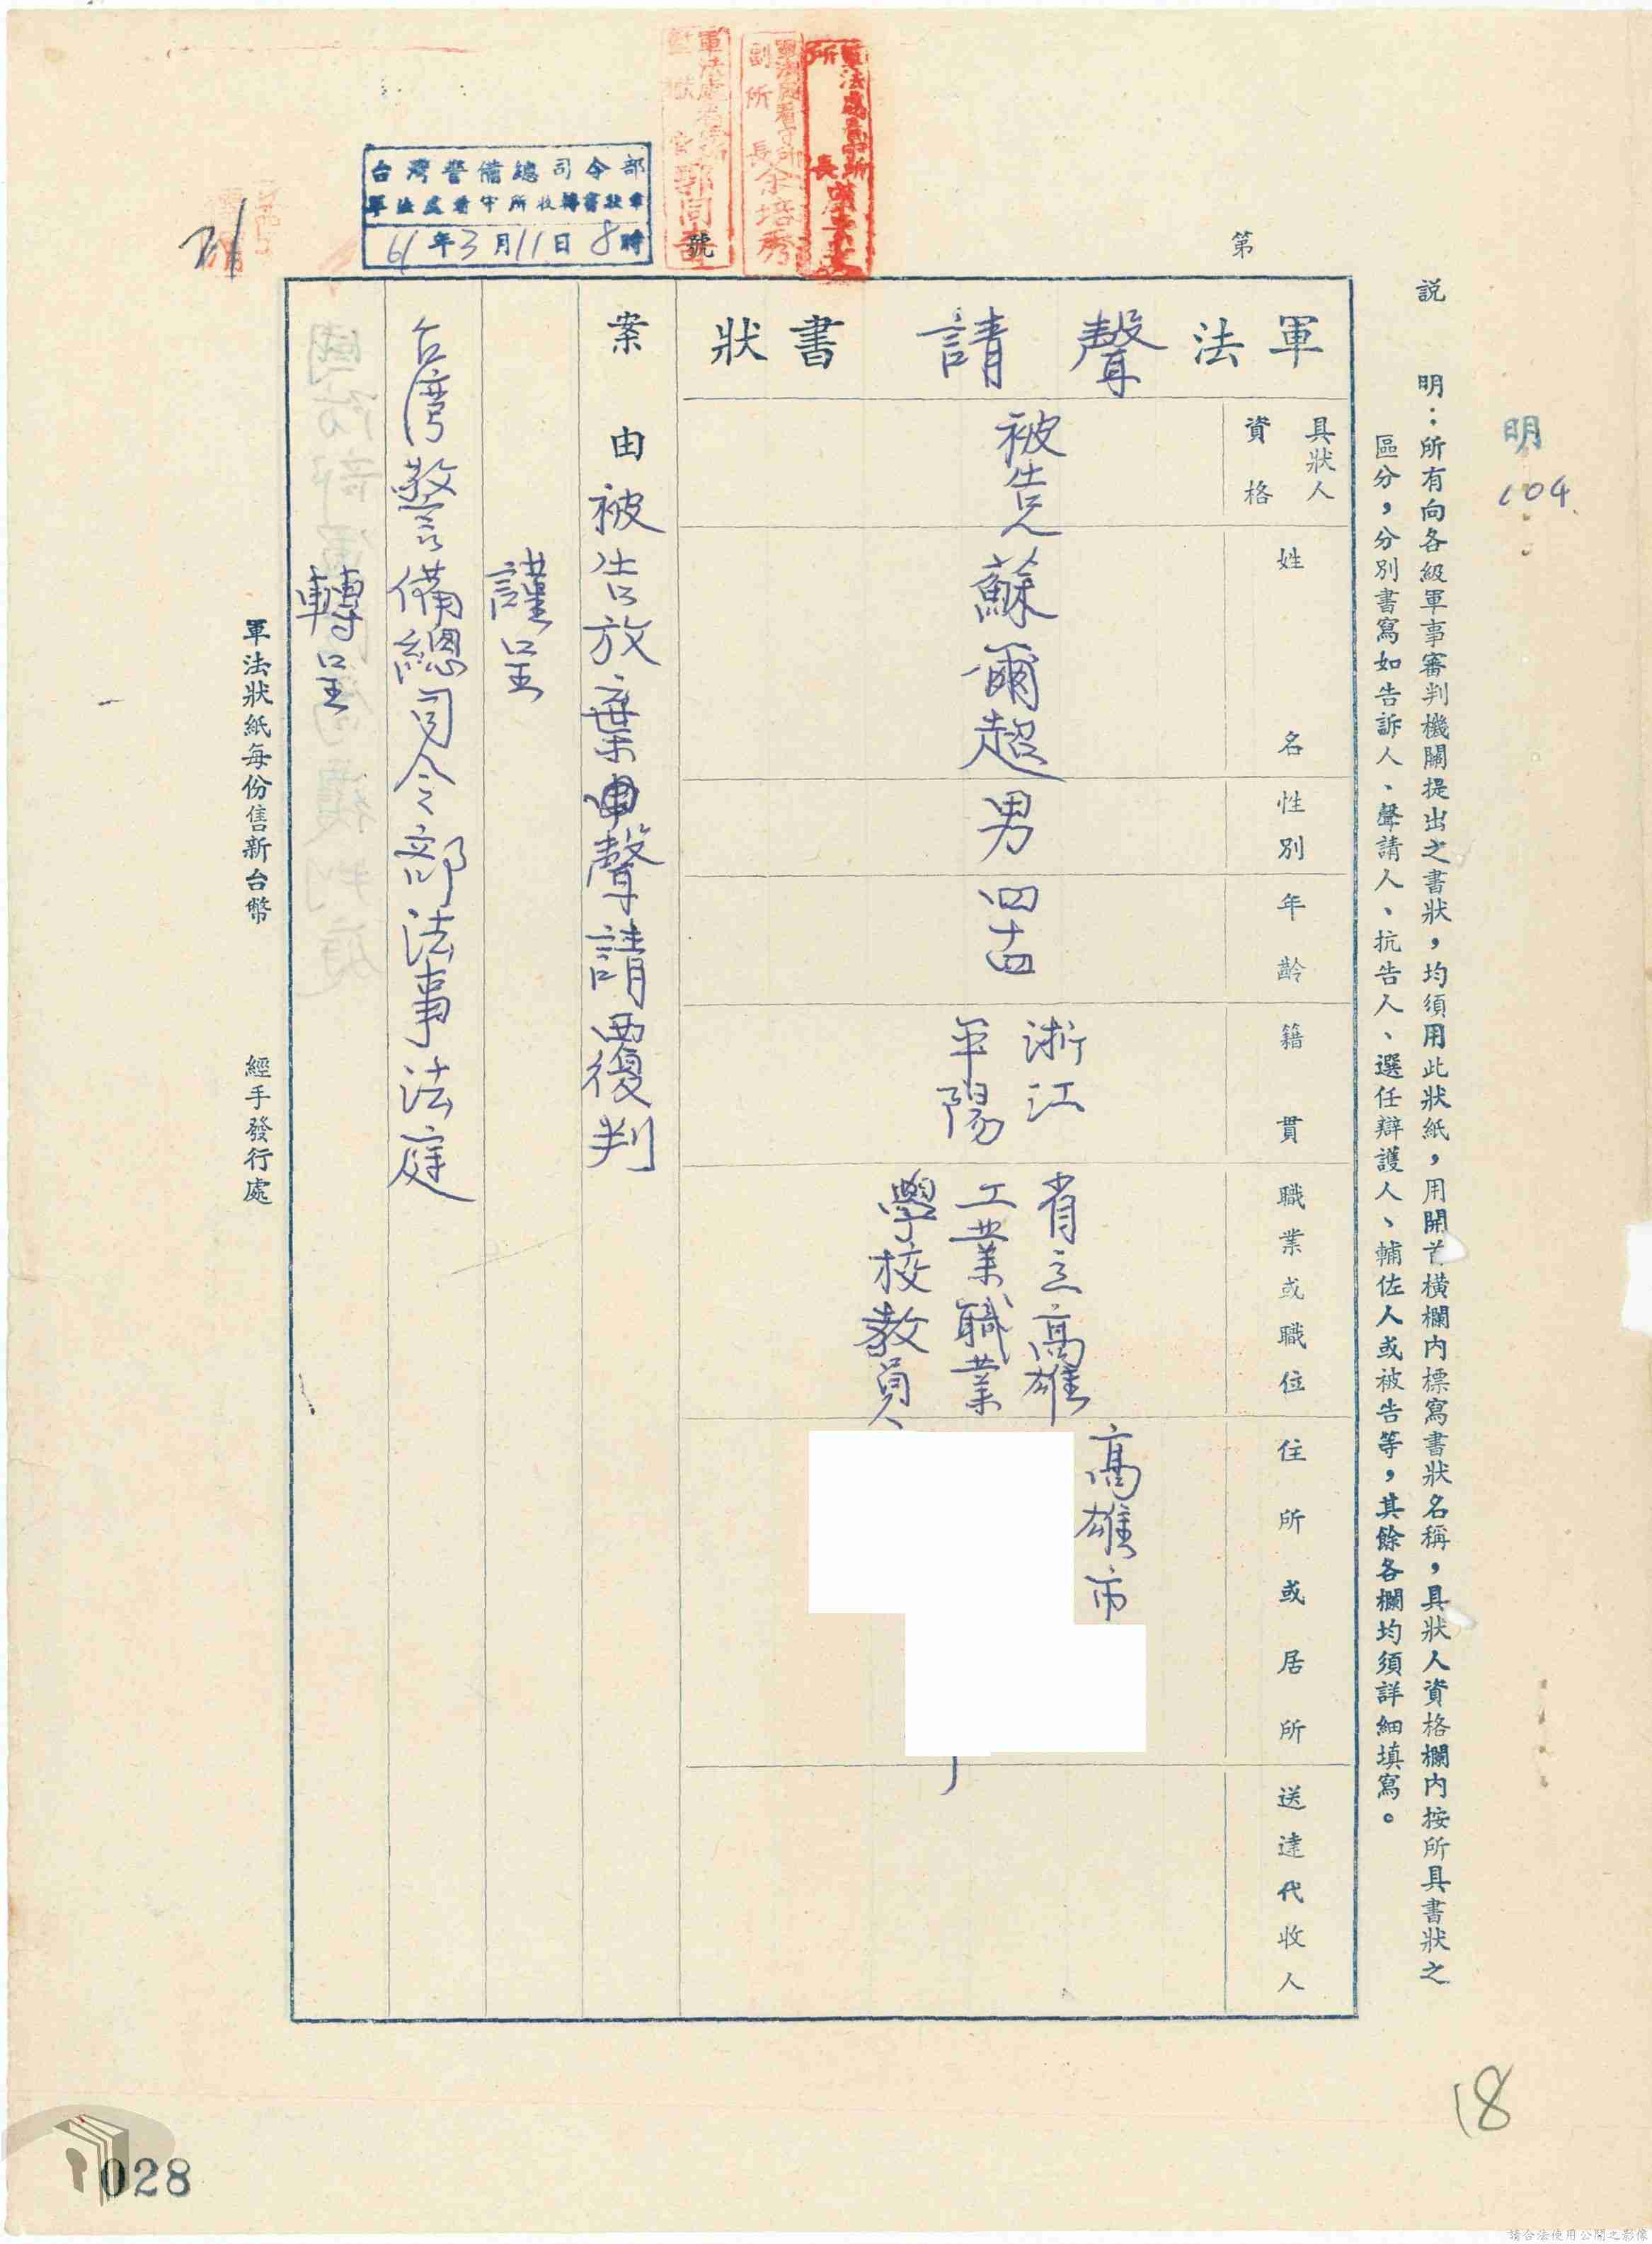 明
104
說　明：所有向各級軍事審判機關提出之書狀，均須用此狀紙，用開首橫欄內標寫書狀名稱，具狀人資格欄內按所具書狀之
區分，分別書寫如告訴人、聲請人、抗告人、選任辯護人、輔佐人或被告等，其餘各欄均須詳細填寫。
第
號
軍法聲請書狀
具狀人
資格
姓名
性別
年齡
籍貫
職業或職位
住所或居所
送達代收人
被告
蘇爾超
男
四十四
浙江
平陽
省立高雄
工業職業
學校教員
高雄市
案由 被告放棄聲請覆判
謹呈
台灣警備總司令部法事法庭
轉呈
軍法狀紙每份售新台幣
經手發行處
台灣警備總司令部
軍法處看守所收轉書狀章
61年3月11日8時
軍法處看守所
所長
副所長余培秀
18
028
請合法使用公開之影像